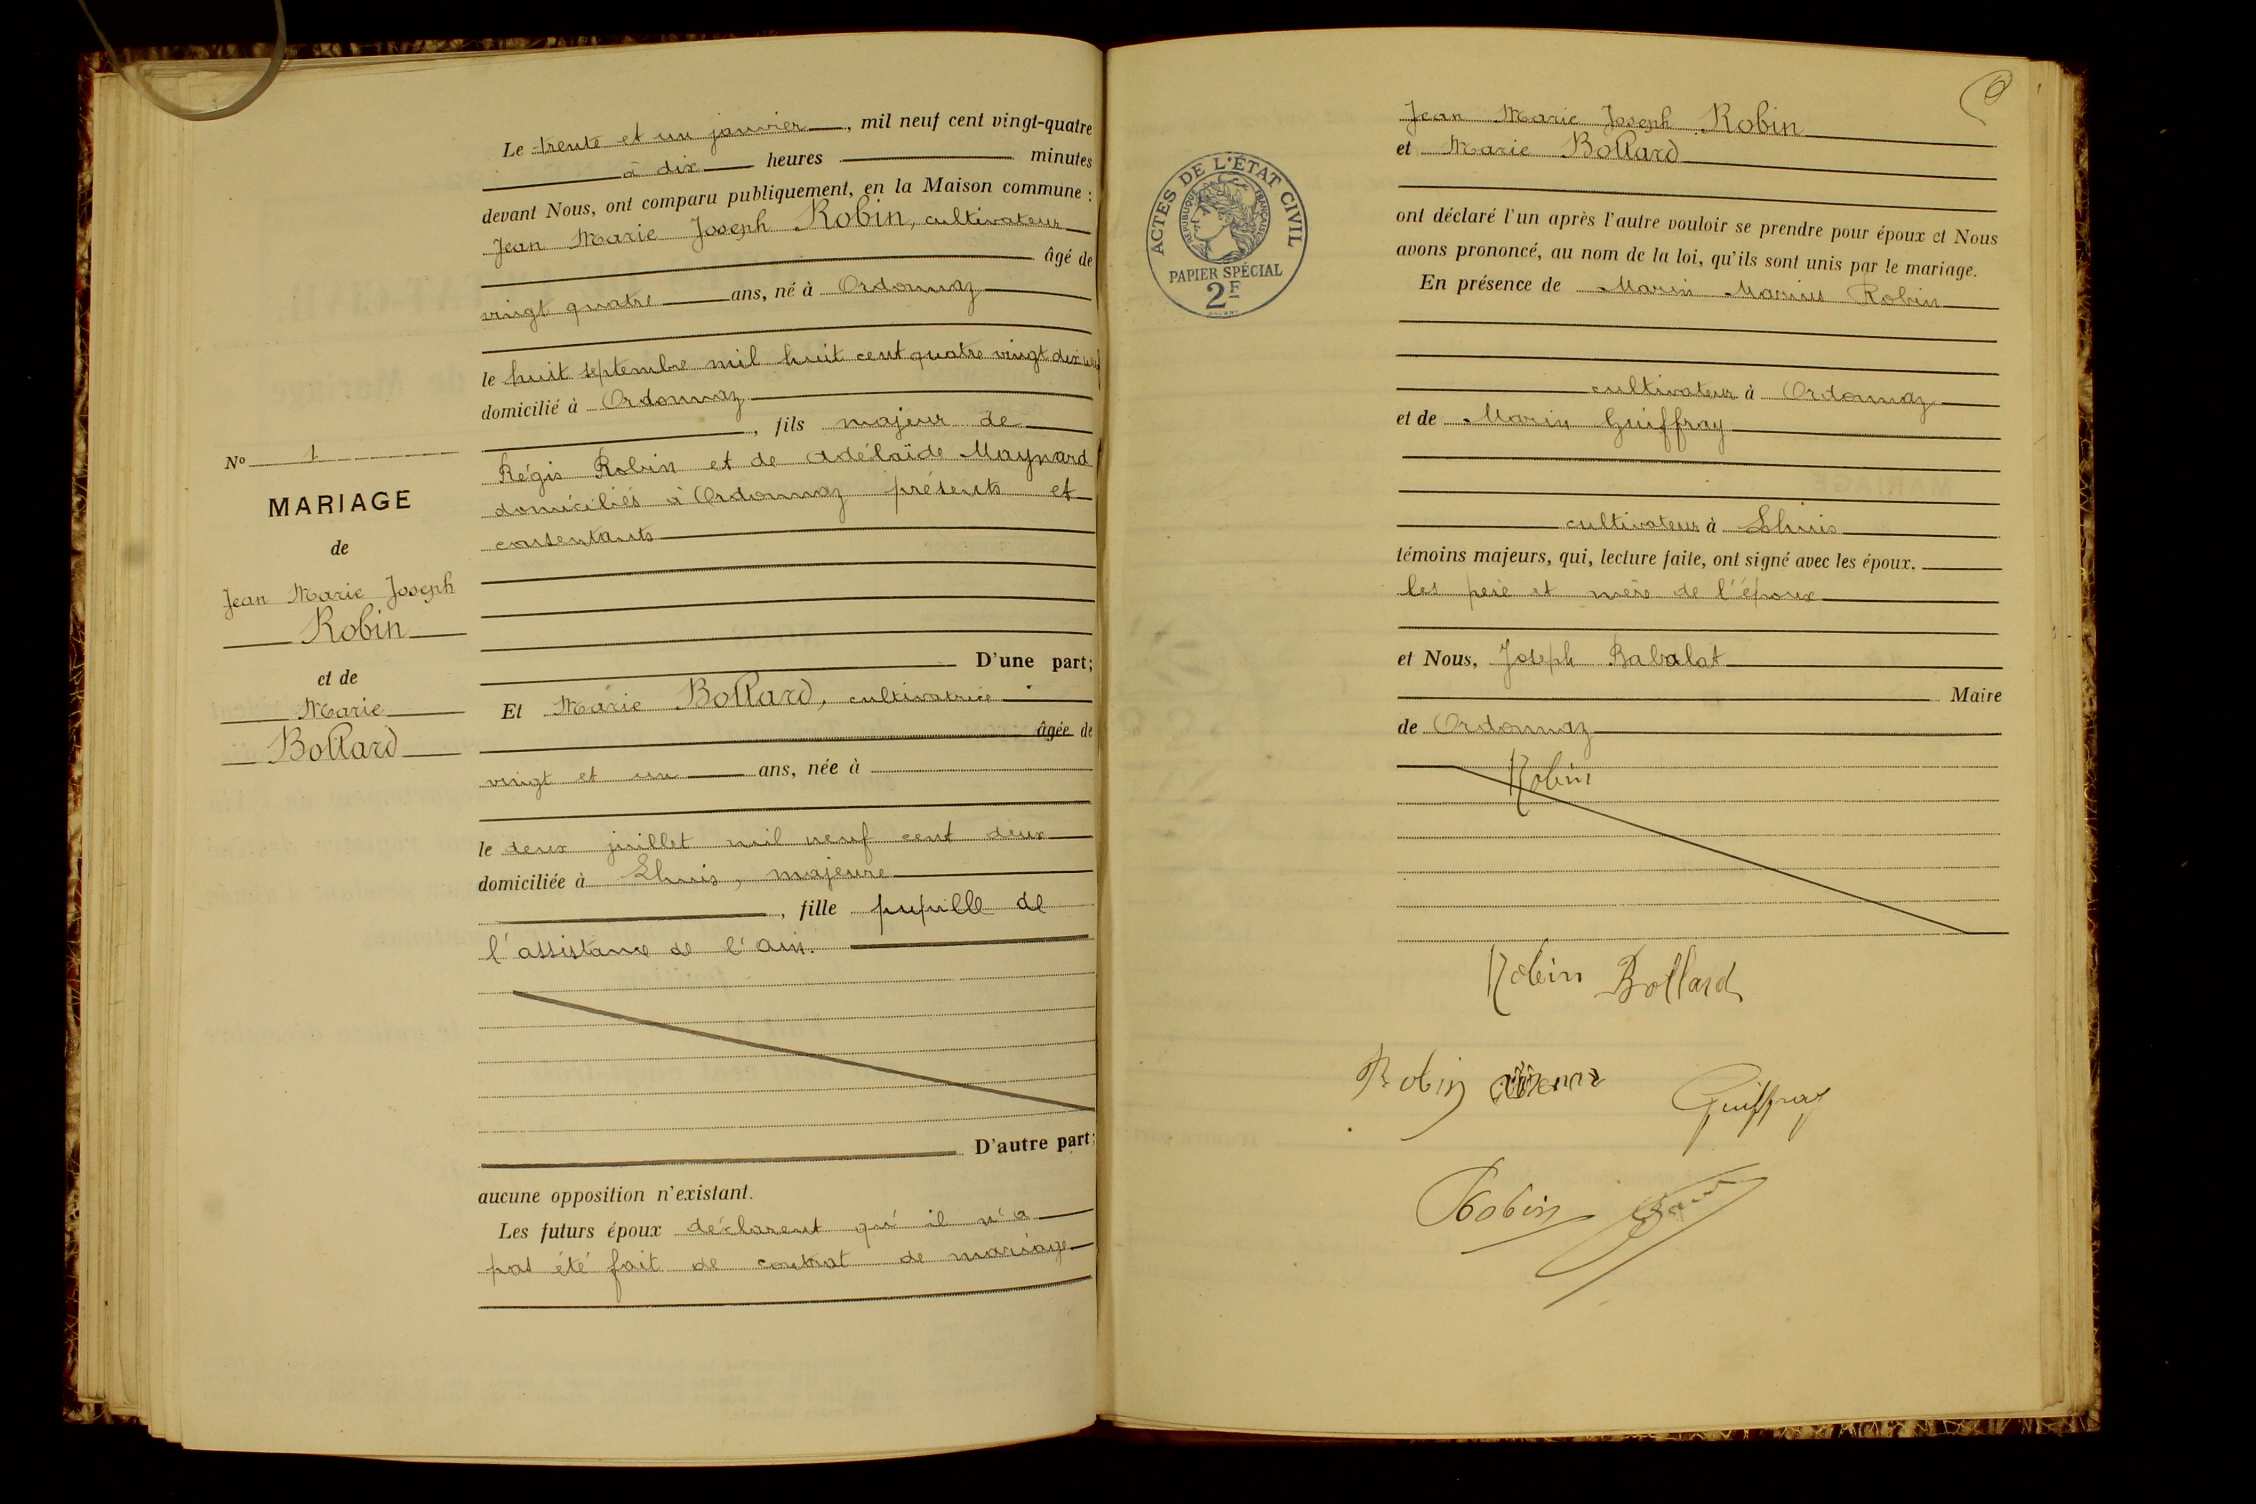 Le trente et un janvier, mil neuf cent vingt-quatre
à dix heures minutes
devant Nous, ont comparu publiquement, en la Maison commune :
Jean Marie Joseph Robin, cultivateur
âgé de
vingt quatre ans, né à Ordonnaz
le huit septembre mil huit cent quatre vingt dix neuf
domicilié à Ordonnaz
, fils majeur de
Régis Robin et de Adélaïde Maynard
domiciliés à Ordonnaz présents et
consentants
D'une part;
Et Marie Bollard, cultivatrice
âgée de
vingt et un ans, née à
le deux juillet mil neuf cent deux
domiciliée à Lhuis, majeure
, fille pupille de
l'assistance de l'ain.
D'autre part;
aucune opposition n'existant.
Les futurs époux déclarent qu'il n'a
pas été fait de contrat de mariage
No 1
MARIAGE
de
Jean Marie Joseph
Robin
et de
Marie
Bollard
Jean Marie Joseph Robin
et Marie Bollard
ont déclaré l'un après l'autre vouloir se prendre pour époux et Nous
avons prononcé, au nom de la loi, qu'ils sont unis par le mariage.
En présence de Marin Marius Robin
cultivateur à Ordonnaz
et de Marin Guiffray
cultivateur à Lhuis
témoins majeurs, qui, lecture faite, ont signé avec les époux.
les père et mère de l'époux
et Nous, Joseph Babolat
Maire
de Ordonnaz
Robin
Robin Bollard
Robin
Guiffray
Robin
ACTES DE L'ÉTAT CIVIL
RÉPUBLIQUE FRANÇAISE
PAPIER SPÉCIAL
2F